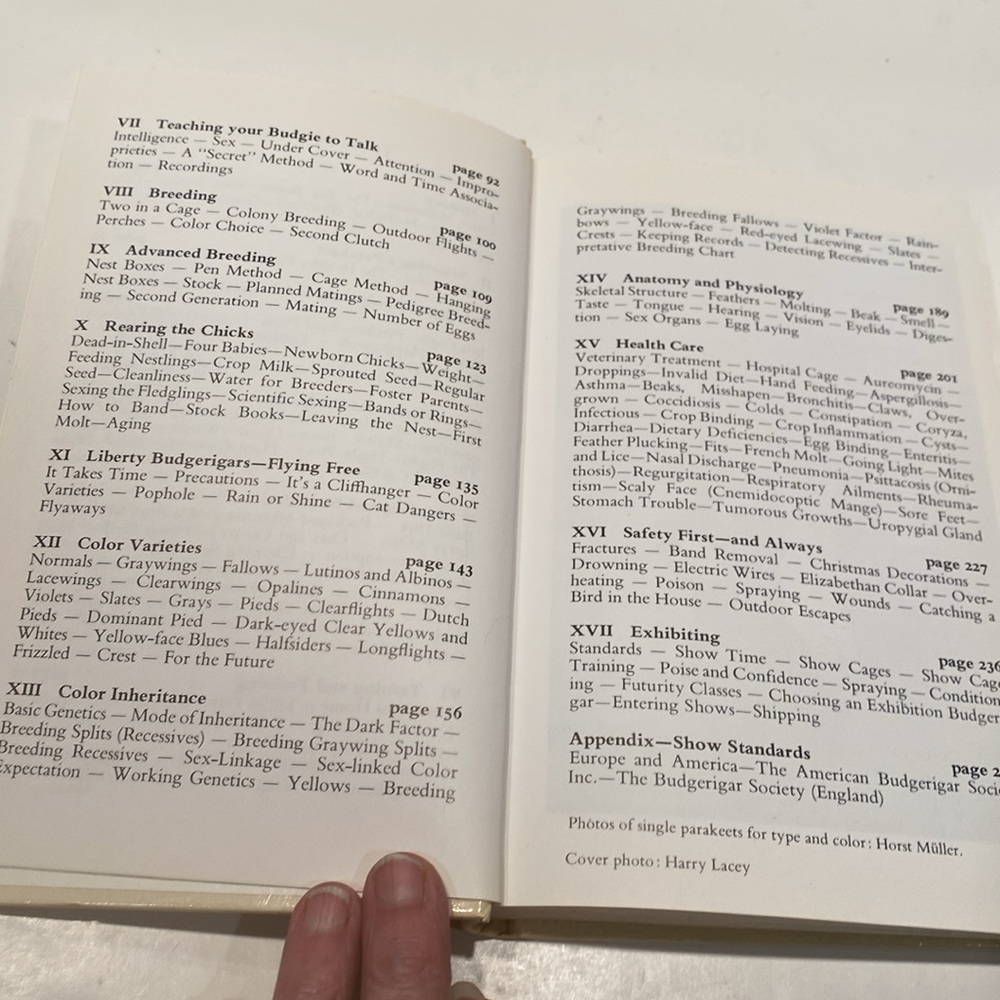 VII Teaching your Budgie to Talk page 92
Intelligence — Sex — Under Cover — Attention — Impro-
prieties — A "Secret" Method — Word and Time Associa-
tion — Recordings
VIII Breeding page 100
Two in a Cage — Colony Breeding — Outdoor Flights —
Perches — Color Choice — Second Clutch
IX Advanced Breeding page 109
Nest Boxes — Pen Method — Cage Method — Hanging
Nest Boxes — Stock — Planned Matings — Pedigree Breed-
ing — Second Generation — Mating — Number of Eggs
X Rearing the Chicks page 123
Dead-in-Shell—Four Babies—Newborn Chicks—Weight—
Feeding Nestlings—Crop Milk—Sprouted Seed—Regular
Seed—Cleanliness—Water for Breeders—Foster Parents—
Sexing the Fledglings—Scientific Sexing—Bands or Rings—
How to Band—Stock Books—Leaving the Nest—First
Molt—Aging
XI Liberty Budgerigars—Flying Free page 135
It Takes Time — Precautions — It's a Cliffhanger — Color
Varieties — Pophole — Rain or Shine — Cat Dangers —
Flyaways
XII Color Varieties page 143
Normals — Graywings — Fallows — Lutinos and Albinos —
Lacewings — Clearwings — Opalines — Cinnamons —
Violets — Slates — Grays — Pieds — Clearflights — Dutch
Pieds — Dominant Pied — Dark-eyed Clear Yellows and
Whites — Yellow-face Blues — Halfsiders — Longflights —
Frizzled — Crest — For the Future
XIII Color Inheritance page 156
Basic Genetics — Mode of Inheritance — The Dark Factor —
Breeding Splits (Recessives) — Breeding Graywing Splits —
Breeding Recessives — Sex-Linkage — Sex-linked Color
Expectation — Working Genetics — Yellows — Breeding
Graywings — Breeding Fallows — Violet Factor — Rain-
bows — Yellow-face — Red-eyed Lacewing — Slates —
Crests — Keeping Records — Detecting Recessives — Inter-
pretative Breeding Chart
XIV Anatomy and Physiology page 189
Skeletal Structure — Feathers — Molting — Beak — Smell —
Taste — Tongue — Hearing — Vision — Eyelids — Diges-
tion — Sex Organs — Egg Laying
XV Health Care page 201
Veterinary Treatment — Hospital Cage — Aureomycin —
Droppings—Invalid Diet—Hand Feeding—Aspergillosis—
Asthma—Beaks, Misshapen—Bronchitis—Claws, Over-
grown — Coccidiosis — Colds — Constipation — Coryza,
Infectious — Crop Binding — Crop Inflammation — Cysts—
Diarrhea—Dietary Deficiencies—Egg Binding—Enteritis—
Feather Plucking—Fits—French Molt—Going Light—Mites
and Lice—Nasal Discharge—Pneumonia—Psittacosis (Orni-
thosis)—Regurgitation—Respiratory Ailments—Rheuma-
tism—Scaly Face (Cnemidocoptic Mange)—Sore Feet—
Stomach Trouble—Tumorous Growths—Uropygial Gland
XVI Safety First—and Always page 227
Fractures — Band Removal — Christmas Decorations —
Drowning — Electric Wires — Elizabethan Collar — Over-
heating — Poison — Spraying — Wounds — Catching a
Bird in the House — Outdoor Escapes
XVII Exhibiting page 236
Standards — Show Time — Show Cages — Show Cage
Training — Poise and Confidence — Spraying — Condition
ing — Futurity Classes — Choosing an Exhibition Budger
gar—Entering Shows—Shipping
Appendix—Show Standards page 2
Europe and America—The American Budgerigar Soci
Inc.—The Budgerigar Society (England)
Photos of single parakeets for type and color: Horst Müller.
Cover photo: Harry Lacey